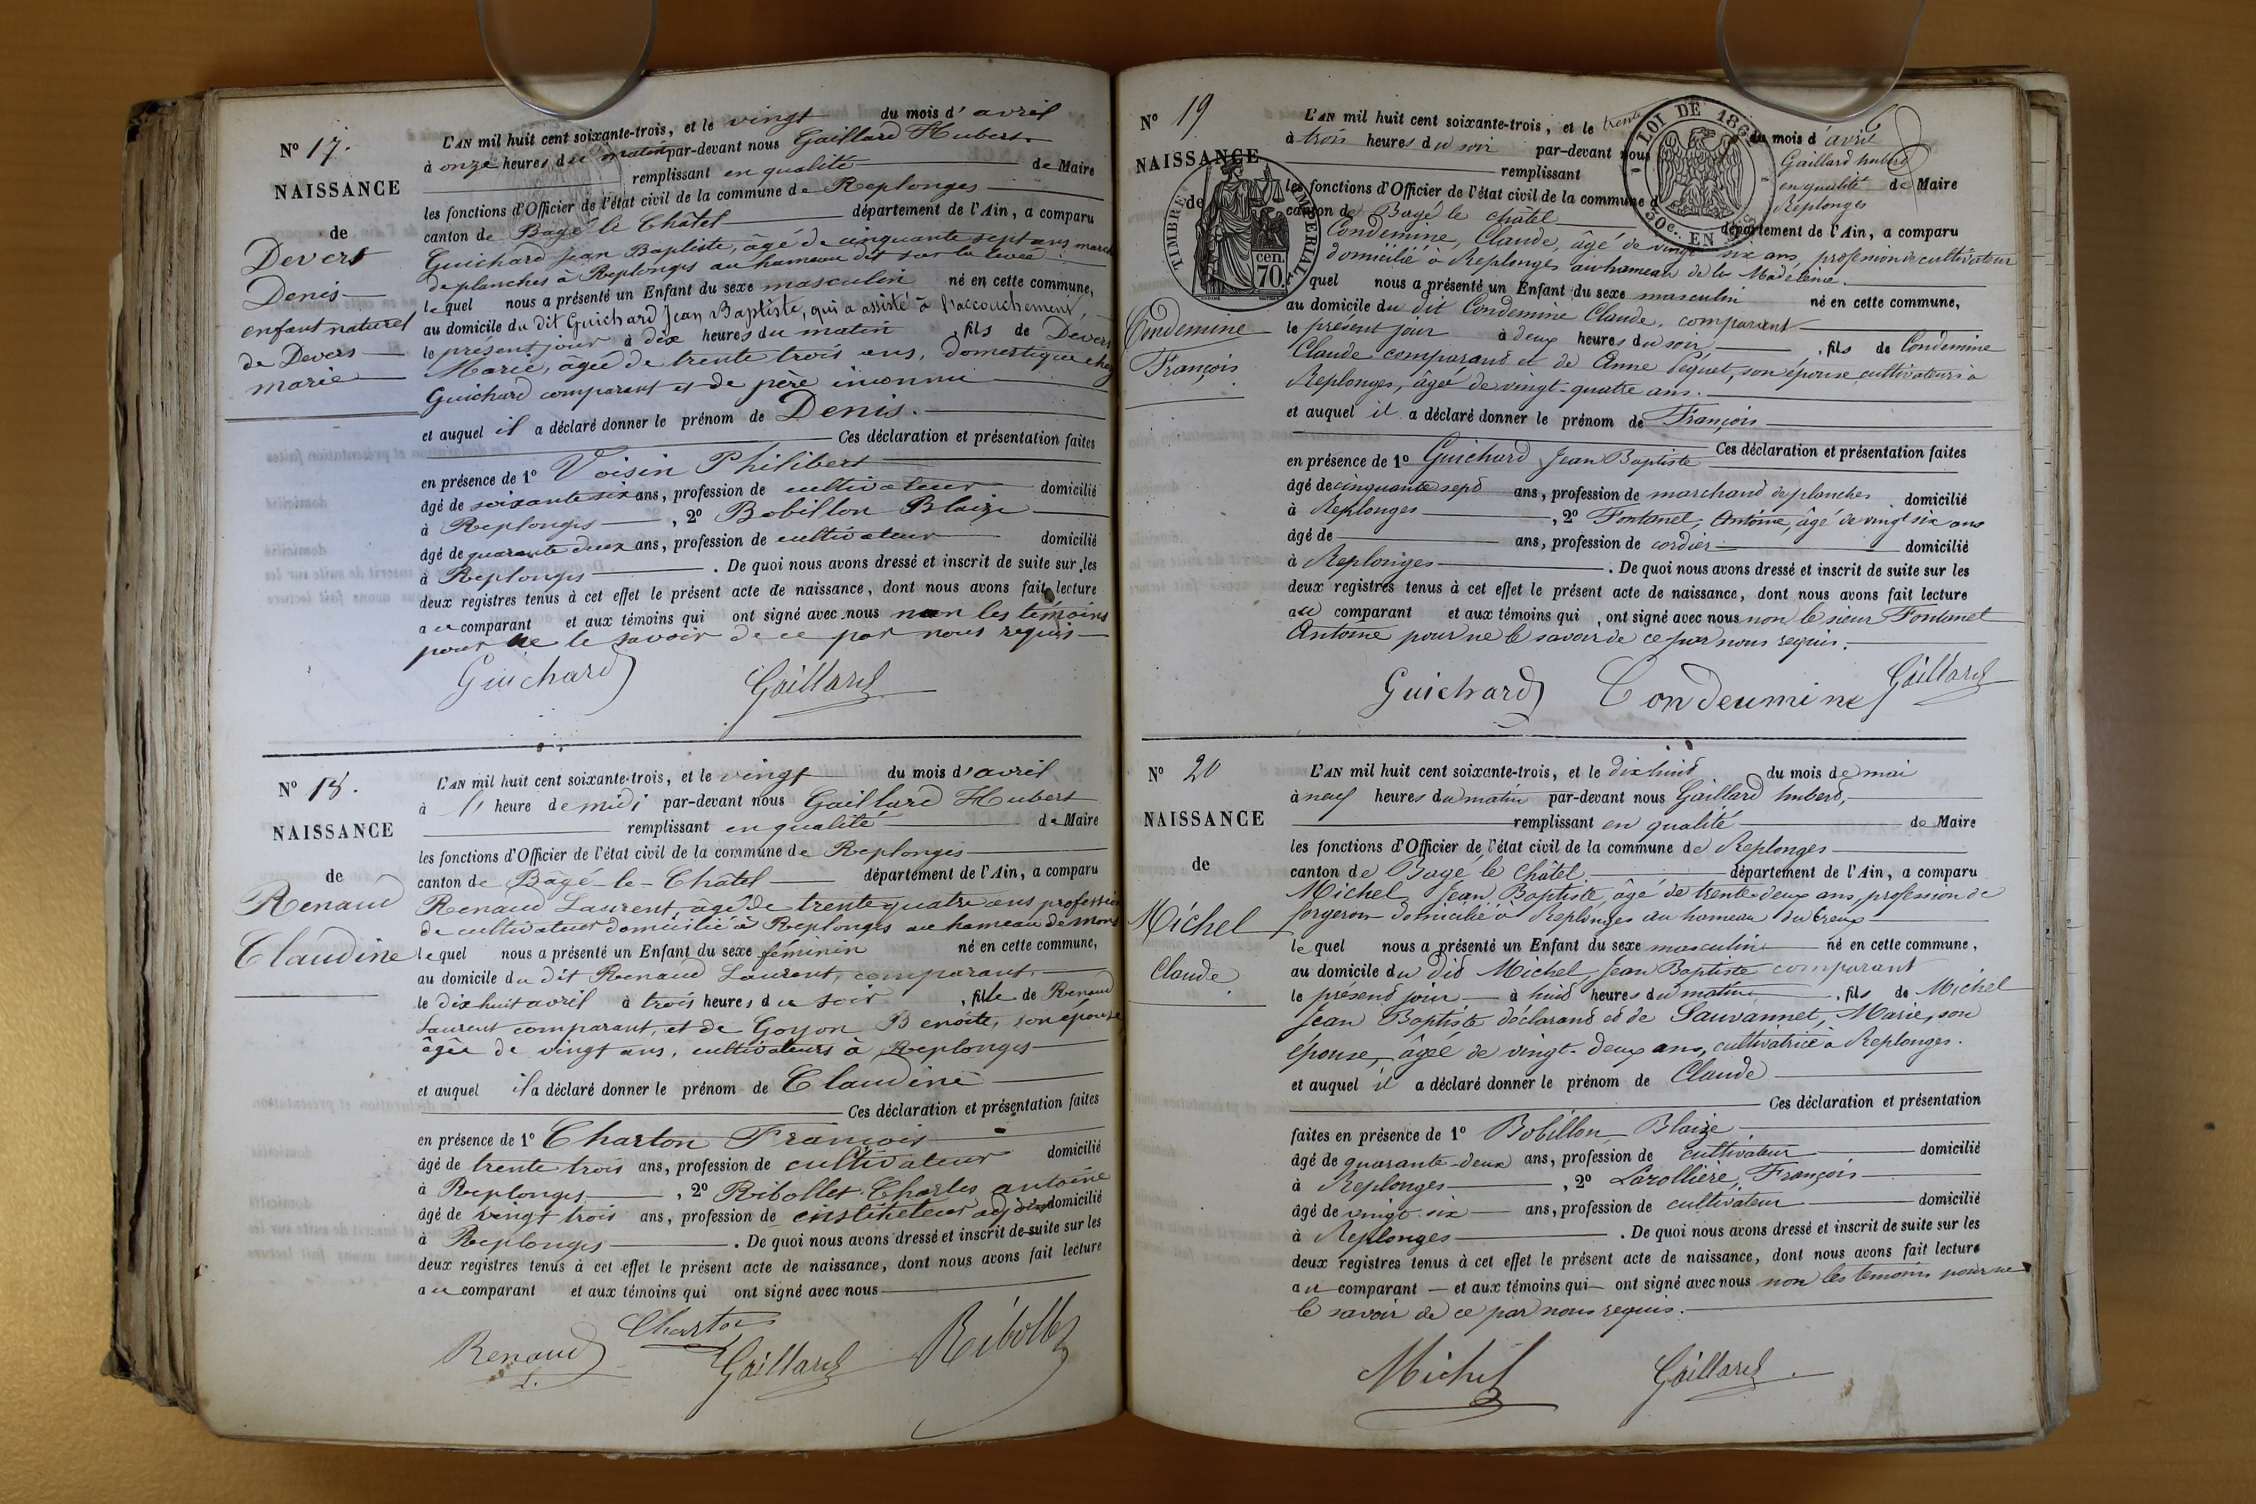 N° 17.
NAISSANCE
de
Devers
Denis
enfant naturel
de Devers
marie
L'AN mil huit cent soixante-trois, et le vingt du mois d'avril
à onze heures du matin par-devant nous Gaillard Hubert
remplissant en qualité de Maire
les fonctions d'Officier de l'état civil de la commune de Replonges
canton de Bagé le Châtel département de l'Ain, a comparu
Guichard Jean Baptiste, âgé de cinquante sept ans march
de planches à Replonges au hameau dit sur la levée
lequel nous a présenté un Enfant du sexe masculin né en cette commune,
au domicile du dit Guichard Jean Baptiste, qui a assisté à l'accouchement,
le présent jour à dix heures du matin, fils de Devers
Marie, âgée de trente trois ans, domestique chez
Guichard comparant et de père inconnu
et auquel il a déclaré donner le prénom de Denis.
Ces déclaration et présentation faites
en présence de 1° Voisin Philibert
âgé de soixante six ans, profession de cultivateur domicilié
à Replonges, 2° Bobillon Blaize
âgé de quarante deux ans, profession de cultivateur domicilié
à Replonges. De quoi nous avons dressé et inscrit de suite sur les
deux registres tenus à cet effet le présent acte de naissance, dont nous avons fait lecture
au comparant et aux témoins qui ont signé avec nous non les témoins
pour ne le savoir de ce par nous requis
Guichard Gaillard
N° 18.
NAISSANCE
de
Renaud
Claudine
L'AN mil huit cent soixante-trois, et le vingt du mois d'avril
à l' heure de midi par-devant nous Gaillard Hubert
remplissant en qualité de Maire
les fonctions d'Officier de l'état civil de la commune de Replonges
canton de Bagé-le-Châtel département de l'Ain, a comparu
Renaud Laurent, âgé de trente quatre ans profession
de cultivateur domicilié à Replonges au hameau de mons
lequel nous a présenté un Enfant du sexe féminin né en cette commune,
au domicile du dit Renaud Laurent, comparant
le dix huit avril à trois heures du soir, fille de Renaud
Laurent comparant, et de Goyon Benoite, son épouse,
âgée de vingt ans, cultivateurs à Replonges
et auquel il a déclaré donner le prénom de Claudine
Ces déclaration et présentation faites
en présence de 1° Charton François
âgé de trente trois ans, profession de cultivateur domicilié
à Replonges, 2° Ribollet Charles antoine
âgé de vingt trois ans, profession de instituteur adjoint domicilié
à Replonges. De quoi nous avons dressé et inscrit de suite sur les
deux registres tenus à cet effet le présent acte de naissance, dont nous avons fait lecture
au comparant et aux témoins qui ont signé avec nous
Charton
Renaud Gaillard Ribollet
L.
N° 19
NAISSANCE
de
Condemine
François
TIMBRE IMPERIAL
70 cen.
LOI DE 186
50c. EN SUS
L'AN mil huit cent soixante-trois, et le trente du mois d'avril
à trois heures du soir par-devant nous Gaillard hubert
remplissant en qualité de Maire
les fonctions d'Officier de l'état civil de la commune d Replonges
canton de Bagé le châtel département de l'Ain, a comparu
Condemine, Claude, âgé de vingt six ans, profession de cultivateur
domicilié à Replonges au hameau de la Madeleine.
lequel nous a présenté un Enfant du sexe masculin né en cette commune,
au domicile du dit Condemine Claude, comparant
le présent jour à deux heures du soir, fils de Condemine
Claude comparant et de Anne Péquet, son épouse cultivateurs à
Replonges, âgée de vingt-quatre ans.
et auquel il a déclaré donner le prénom de François
Ces déclaration et présentation faites
en présence de 1° Guichard Jean Baptiste
âgé de cinquante sept ans, profession de marchand de planches domicilié
à Replonges, 2° Fontanel, Antoine, âgé de vingt six ans
âgé de ans, profession de cordier domicilié
à Replonges. De quoi nous avons dressé et inscrit de suite sur les
deux registres tenus à cet effet le présent acte de naissance, dont nous avons fait lecture
au comparant et aux témoins qui, ont signé avec nous non le sieur Fontanel
Antoine pour ne le savoir de ce par nous requis.
Guichard Condeumine Gaillard
N° 20
NAISSANCE
de
Michel
Claude
L'AN mil huit cent soixante-trois, et le dix huit du mois de mai
à neuf heures du matin par-devant nous Gaillard hubert,
remplissant en qualité de Maire
les fonctions d'Officier de l'état civil de la commune de Replonges
canton de Bagé le Châtel. département de l'Ain, a comparu
Michel Jean Baptiste, âgé de trente-deux ans, profession de
forgeron domicilié à Replonges au hameau du Creux
lequel nous a présenté un Enfant du sexe masculin né en cette commune,
au domicile du dit Michel Jean Baptiste comparant
le présent jour à huit heures du matin, fils de Michel
Jean Baptiste déclarant et de Sauvannet, Marie, son
épouse, âgée de vingt-deux ans, cultivatrice à Replonges.
et auquel il a déclaré donner le prénom de Claude
Ces déclaration et présentation
faites en présence de 1° Bobillon Blaize
âgé de quarante-deux ans, profession de cultivateur domicilié
à Replonges, 2° Larollière, François
âgé de vingt-six ans, profession de cultivateur domicilié
à Replonges. De quoi nous avons dressé et inscrit de suite sur les
deux registres tenus à cet effet le présent acte de naissance, dont nous avons fait lecture
au comparant et aux témoins qui ont signé avec nous non les temoins pour ne
le savoir de ce par nous requis.
Michel Gaillard